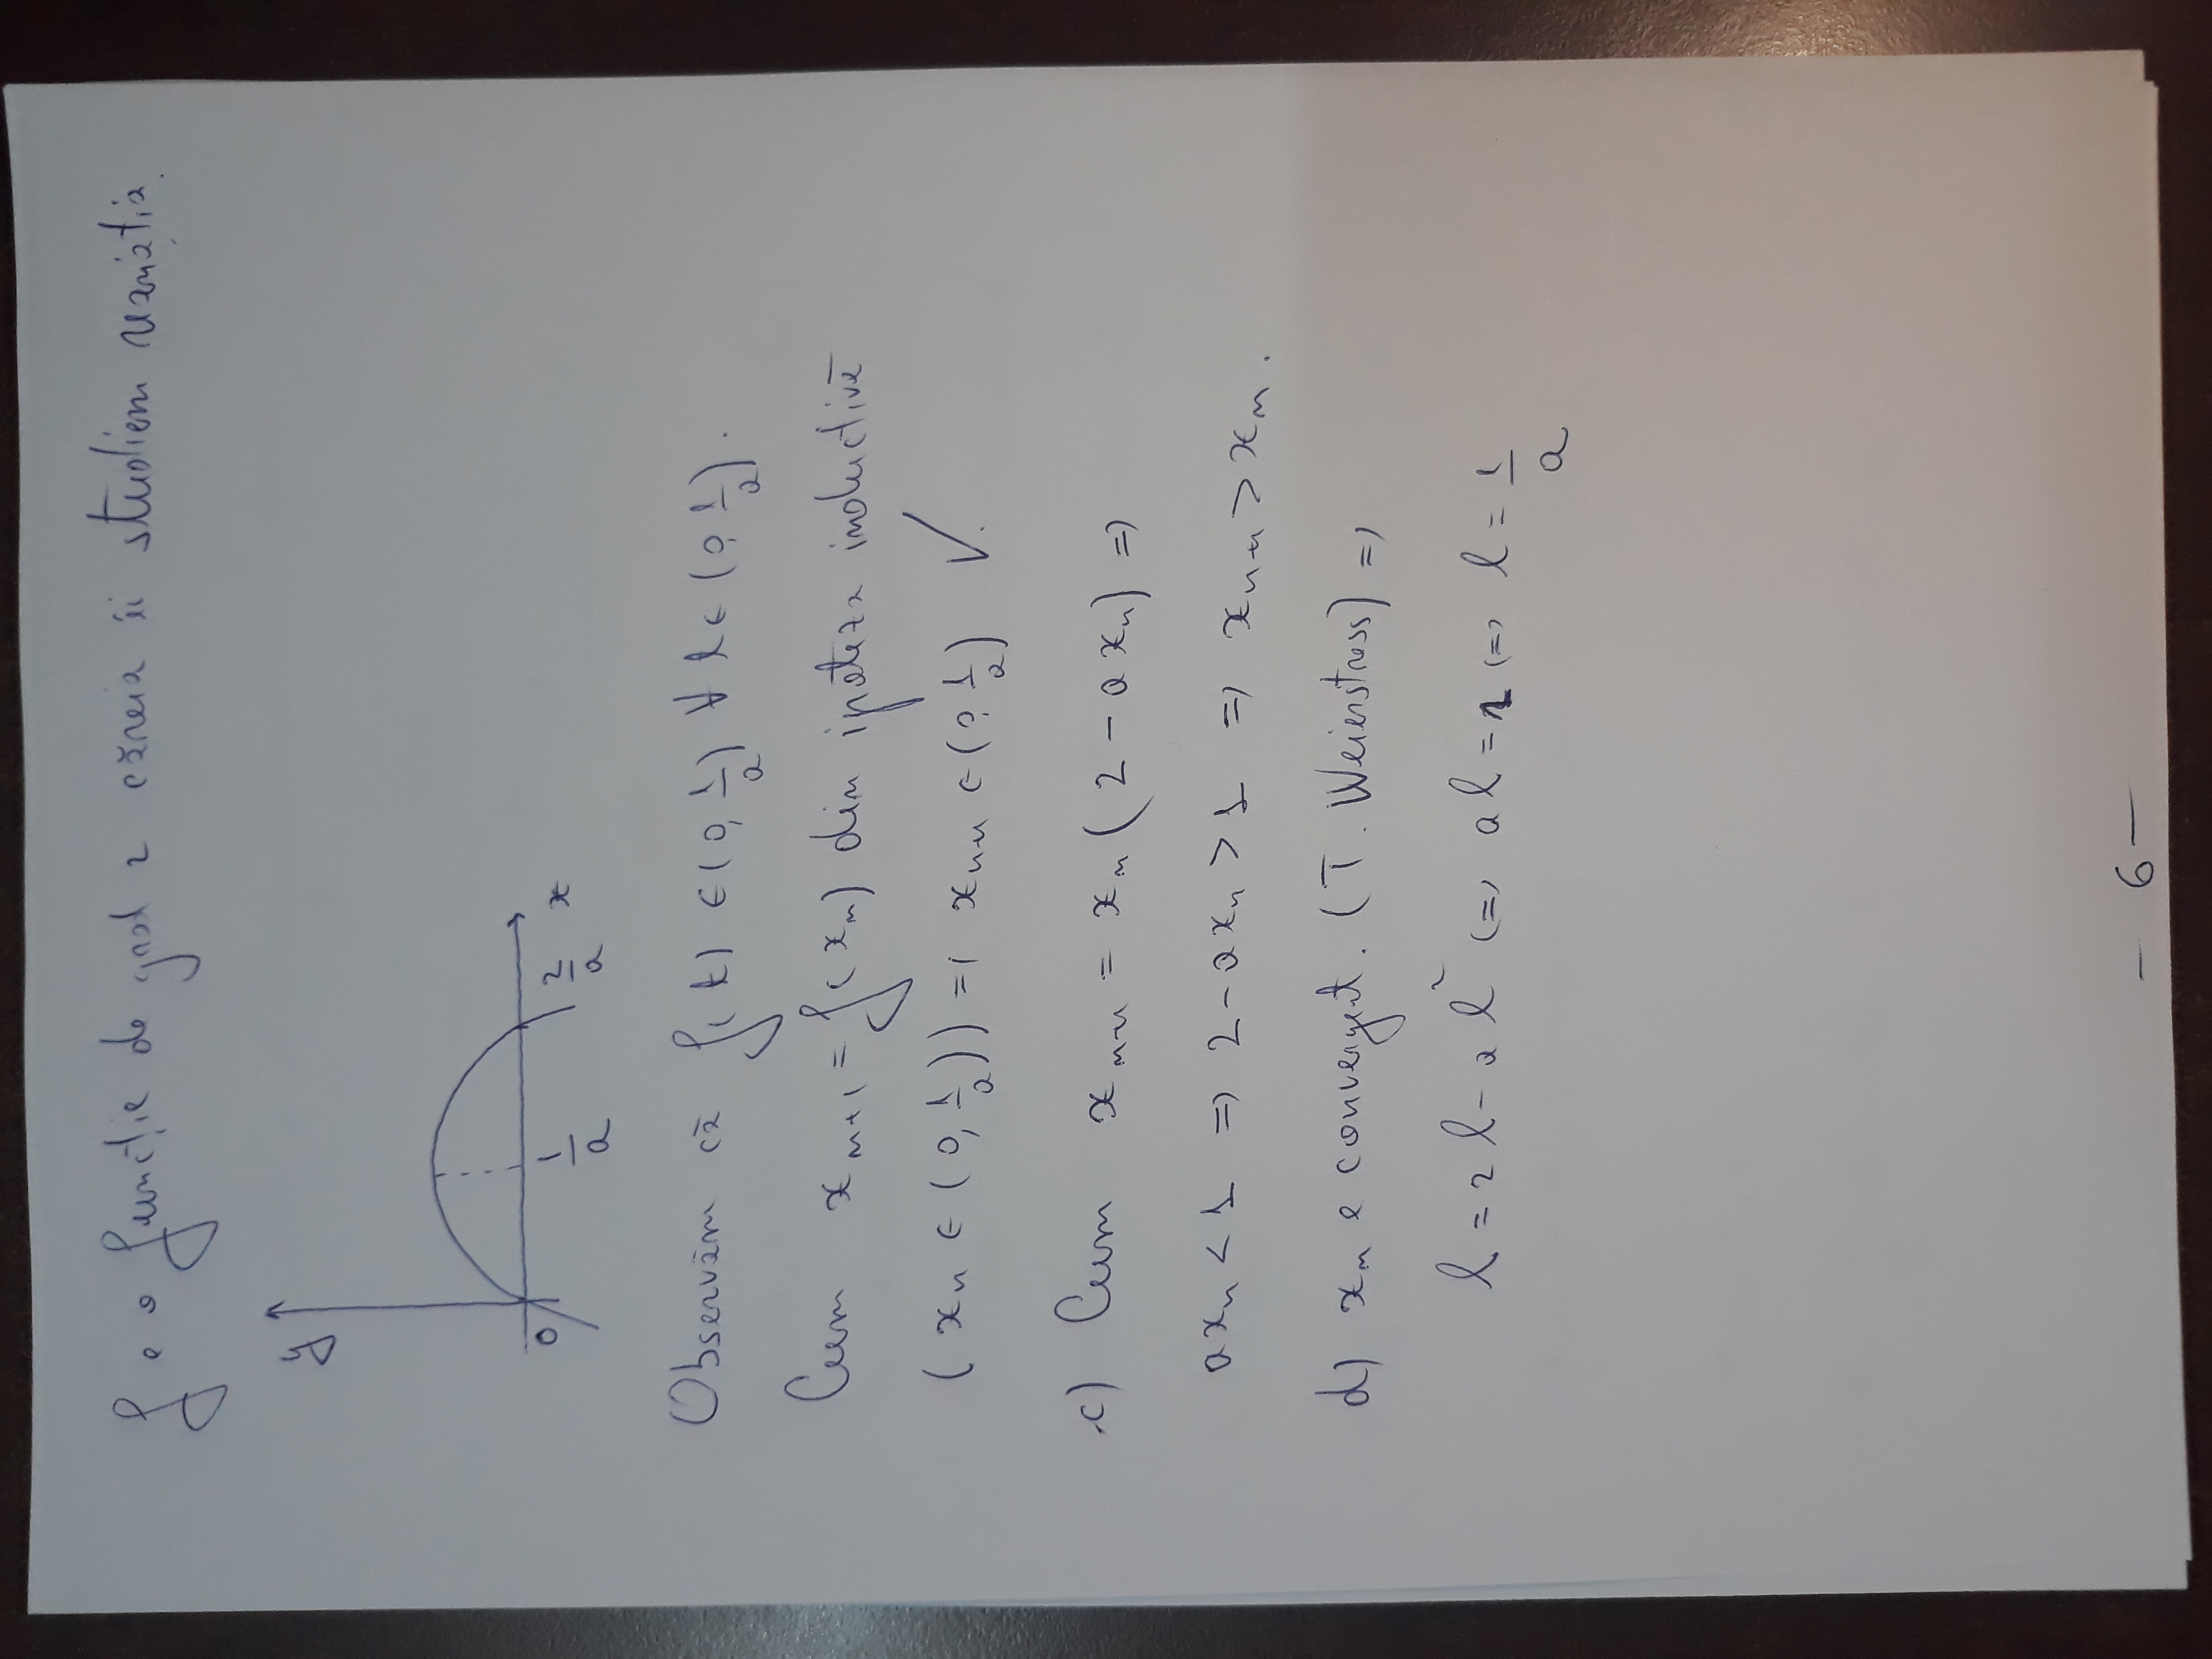 f e o funcție de grad 2 căreia îi studiem variația.
y
0 1/a 2/a x
Observăm că f(t) ∈ (0, 1/a) ∀ t ∈ (0, 1/a).
Cum x_{n+1} = f(x_n) din ipoteza inductivă
(x_n ∈ (0, 1/a)) => x_{n+1} ∈ (0, 1/a) ✓.
c) Cum x_{n+1} = x_n (2 - a x_n) =>
a x_n < 1 => 2 - a x_n > 1 => x_{n+1} > x_n.
d) x_n e convergent. (T. Weierstrass) =>
l = 2l - a l² <=> a l = 1 <=> l = 1/a
- 6 -